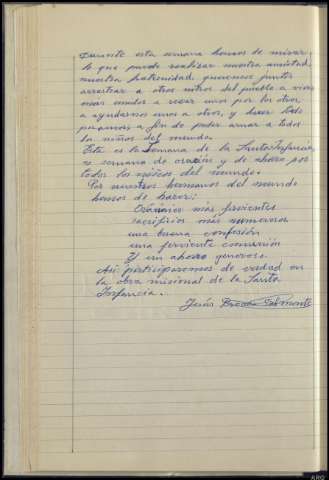 Durante esta semana hemos de mirar
lo que puede realizar nuestra amistad
nuestra fraternidad, queremos juntos
arrastrar a otros niños del pueblo a vivir
a rezar unos por los otros,
a ayudarnos unos a otros, y hacer todo
a fin de poder amar a todos
los niños del mundo.
Esta es la Semana de la Santa Infancia,
es semana de oración y de ahorro por
todos los niños del mundo.
Por nuestros hermanos del mundo
hemos de hacer:
Oraciones más fervientes
sacrificios más numerosos
una buena confesión
una ferviente comunión
Y un ahorro generoso.
Así participaremos de verdad en
la obra misional de la Santa
Infancia.
Jesús
ARQ